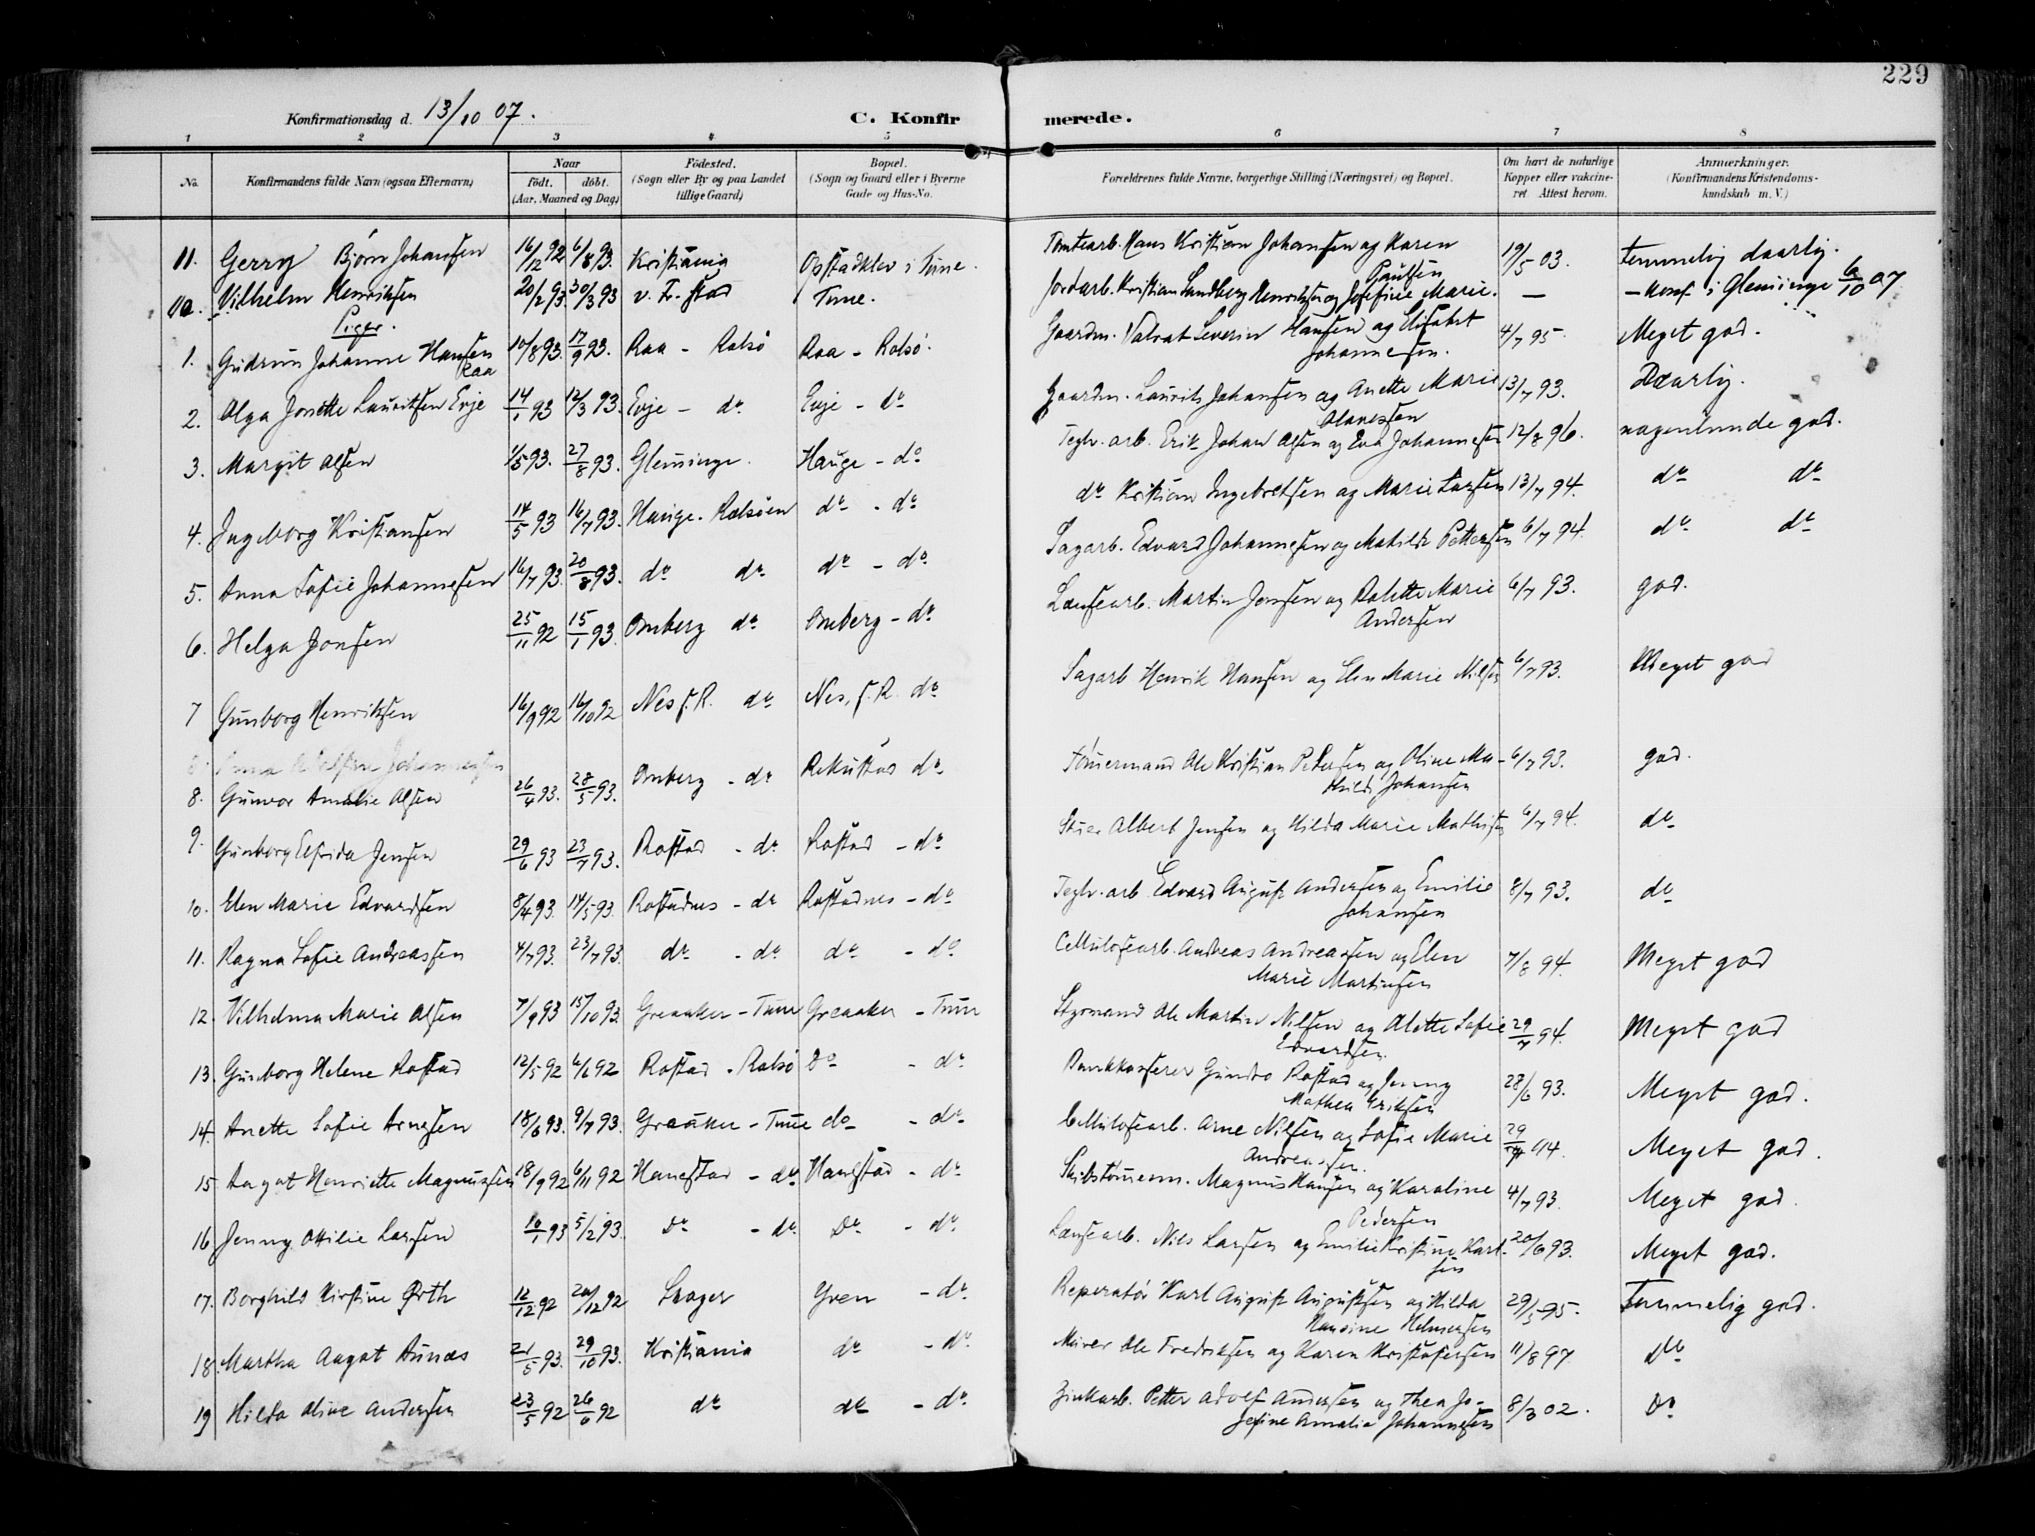 229
Konfirmationsdag d. 13/10 07.
C. Konfirmerede.
1 2 3 4 5 6 7 8
No.
Konfirmandens fulde Navn (ogsaa Efternavn)
Naar
født. døbt.
(Aar, Maaned og Dag)
Fødested.
(Sogn eller By og paa Landet
tillige Gaard)
Bopæl.
(Sogn og Gaard eller i Byerne
Gade og Hus-No.
Forældrenes fulde Navne, borgerlige Stilling (Næringsvei) og Bopæl.
Om havt de naturlige
Kopper eller vakcine-
ret Attest herom.
Anmærkninger.
(Konfirmandens Kristendoms-
kundskab m. V.)
11. Gerry Bjørn Johansen 16/12 92 6/8 93. Kristiania Opstadklev i Tune. Tomtearb. Hans Kristian Johansen og Karen Paulsen 19/5 03. temmelig daarlig.
Vilhelm Henriksen 20/2 93 30/3 93 v. Fr. stad Tune. Jordarb. Kristian Sandberg Henriksen og Josefine Marie. — – Konf. i Glemminge 6/10 07
Piger.
1. Gudrun Johanne Hansen Raa 10/8 93. 17/9 93. Raa – Rolsø Raa – Rolsø. Gaardm. Valvat Severin Hansen og Elisabet Johannesen. 4/7 95. Meget god.
2. Olga Josette Lauritsen Evje 14/1 93 12/3 93. Evje – do Evje – do Gaardm. Laurits Johansen og Anette Marie Olavessen 13/7 93. Daarlig.
3. Margit Olsen 1/5 93. 27/8 93. Glemminge. Hauge – do Teglv. arb. Erik Johan Olsen og Eva Johannessen 12/8 96. nogenlunde god.
4. Ingeborg Kristiansen 14/5 93 16/7 93. Hauge. Rolsøen do – do do Kristian Ingebretsen og Marie Larsen 13/7 94. do do
5. Anna Sofie Johannesen 16/7 93. 20/8 93. do do do – do Sagarb. Edvard Johannesen og Matilde Pettersen 6/7 94. do do
6. Helga Jonsen 25/11 92 15/1 93. Omberg do Omberg – do Lensearb. Martin Jensen og Bolette Marie Andersen 6/7 93. god.
7 Gunborg Henriksen 16/9 92 16/10 92 Nes f. R. do Nes, f. R. do Sagarb Henrik Hansen og Elen Marie Nilsen 6/7 93. Meget god
8. Gunvor Amalie Olsen 26/4 93. 28/5 93. Omberg – do Rekustad do Tømermand Ole Kristian Petersen og Oline Mathilde Johansen 6/7 93. god.
9. Gunborg Elfrida Jensen 29/6 93 23/7 93. Rostad – do Rostad – do Stuer Albert Jensen og Hilda Marie Mathisen 6/7 94. do
10. Elen Marie Edvardsen 8/4 93. 14/5 93. Rostadnes – do Rostadnes – do Teglv. arb. Edvard August Andersen og Emilie Johansen 8/7 93. do
11. Ragna Sofie Andreassen 4/7 93. 23/7 93. do – do do – do Cellulosearb. Andreas Andreassen og Elen Marie Martinsen 7/8 94. Meget god
12. Vilhelma Marie Olsen 7/9 93 15/10 93. Greaaker – Tune Greaaker – Tune Styrmand Ole Martin Nilsen og Olette Sofie Edvardsen. 29/7 94. Meget god
13. Gunborg Helene Rostad 12/5 92 6/6 92 Rostad – Rolsø Do – do Bankkasserer Gundro Rostad og Jenny Mathea Eriksen 28/6 93. Meget god.
14. Anette Sofie Arnesen 18/6 93. 9/7 93. Greaaker – Tune do – do Cellulosearb. Arne Nilsen og Sofie Marie Andreassen. 29/7 94. Meget god.
15. Aagot Henriette Magnussen 18/9 92 6/11 92 Hanestad – do Hanestad – do Skibstømerm. Magnus Hansen og Karoline Pedersen 4/7 93. Meget god.
16 Jenny Ottilie Larsen 10/1 93 5/2 93. Do – do Do – do Lensearb. Nils Larsen og Emilie Kristine Karlsen 20/6 93. Meget god.
17. Borghild Kirstine Orth 12/12 92 Skoger Gren – do Reperatør Karl August Augustsen og Hilda Hansine Helmersen 29/5 95. Temmelig god.
18. Martha Aagot Aunæs 21/5 93. 29/10 93. Kristiania do – do Murer Ole Fredriksen og Karen Kristofersen 11/8 97. Do
19 Hilda Oline Andersen 23/5 92 26/6 92 do do – do Zinkarb. Petter Adolf Andersen og Thea Josefine Amalie Johannesen 8/3 02. Do